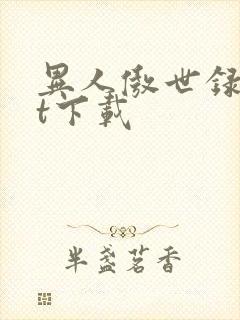 異人傲世録
t下載
半盞茗香